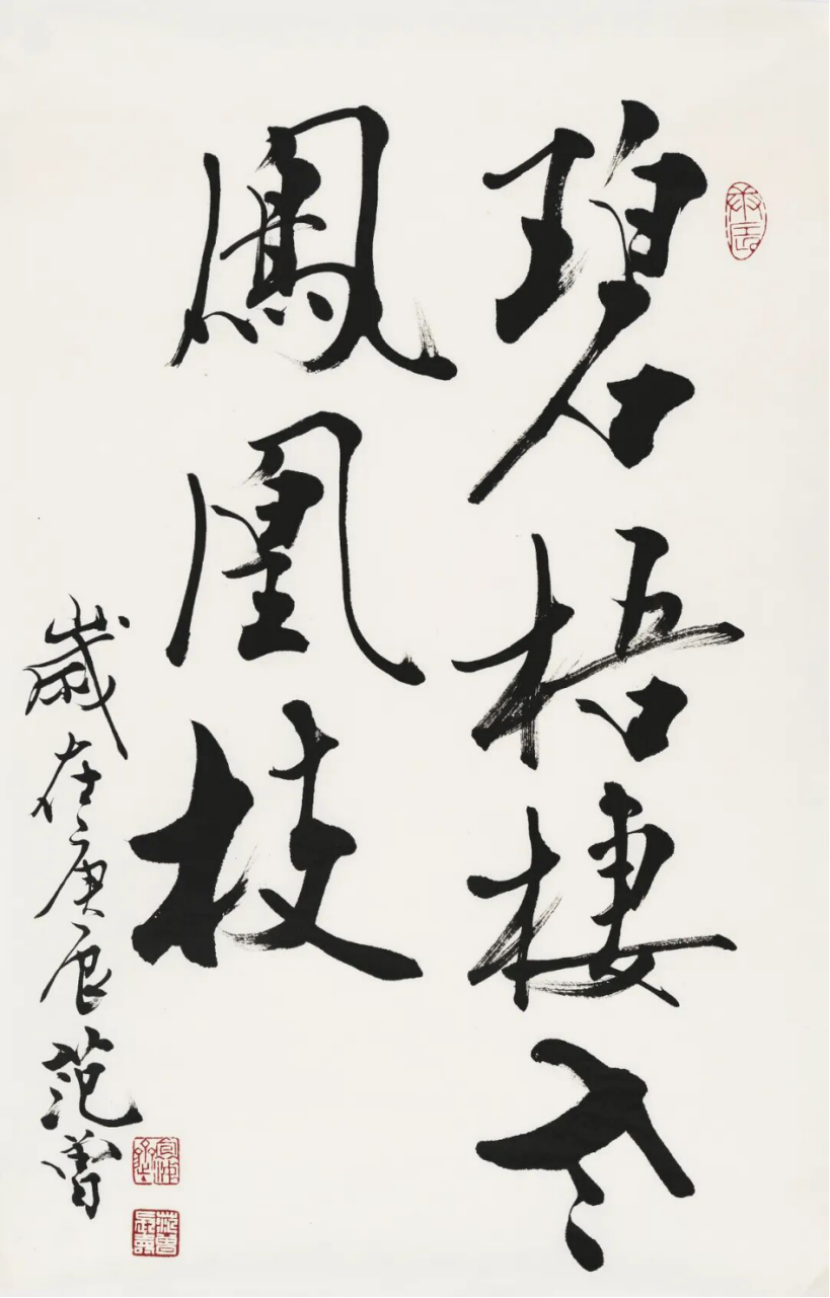 碧梧棲老
鳳凰枝
歲在庚辰范曾
庚辰